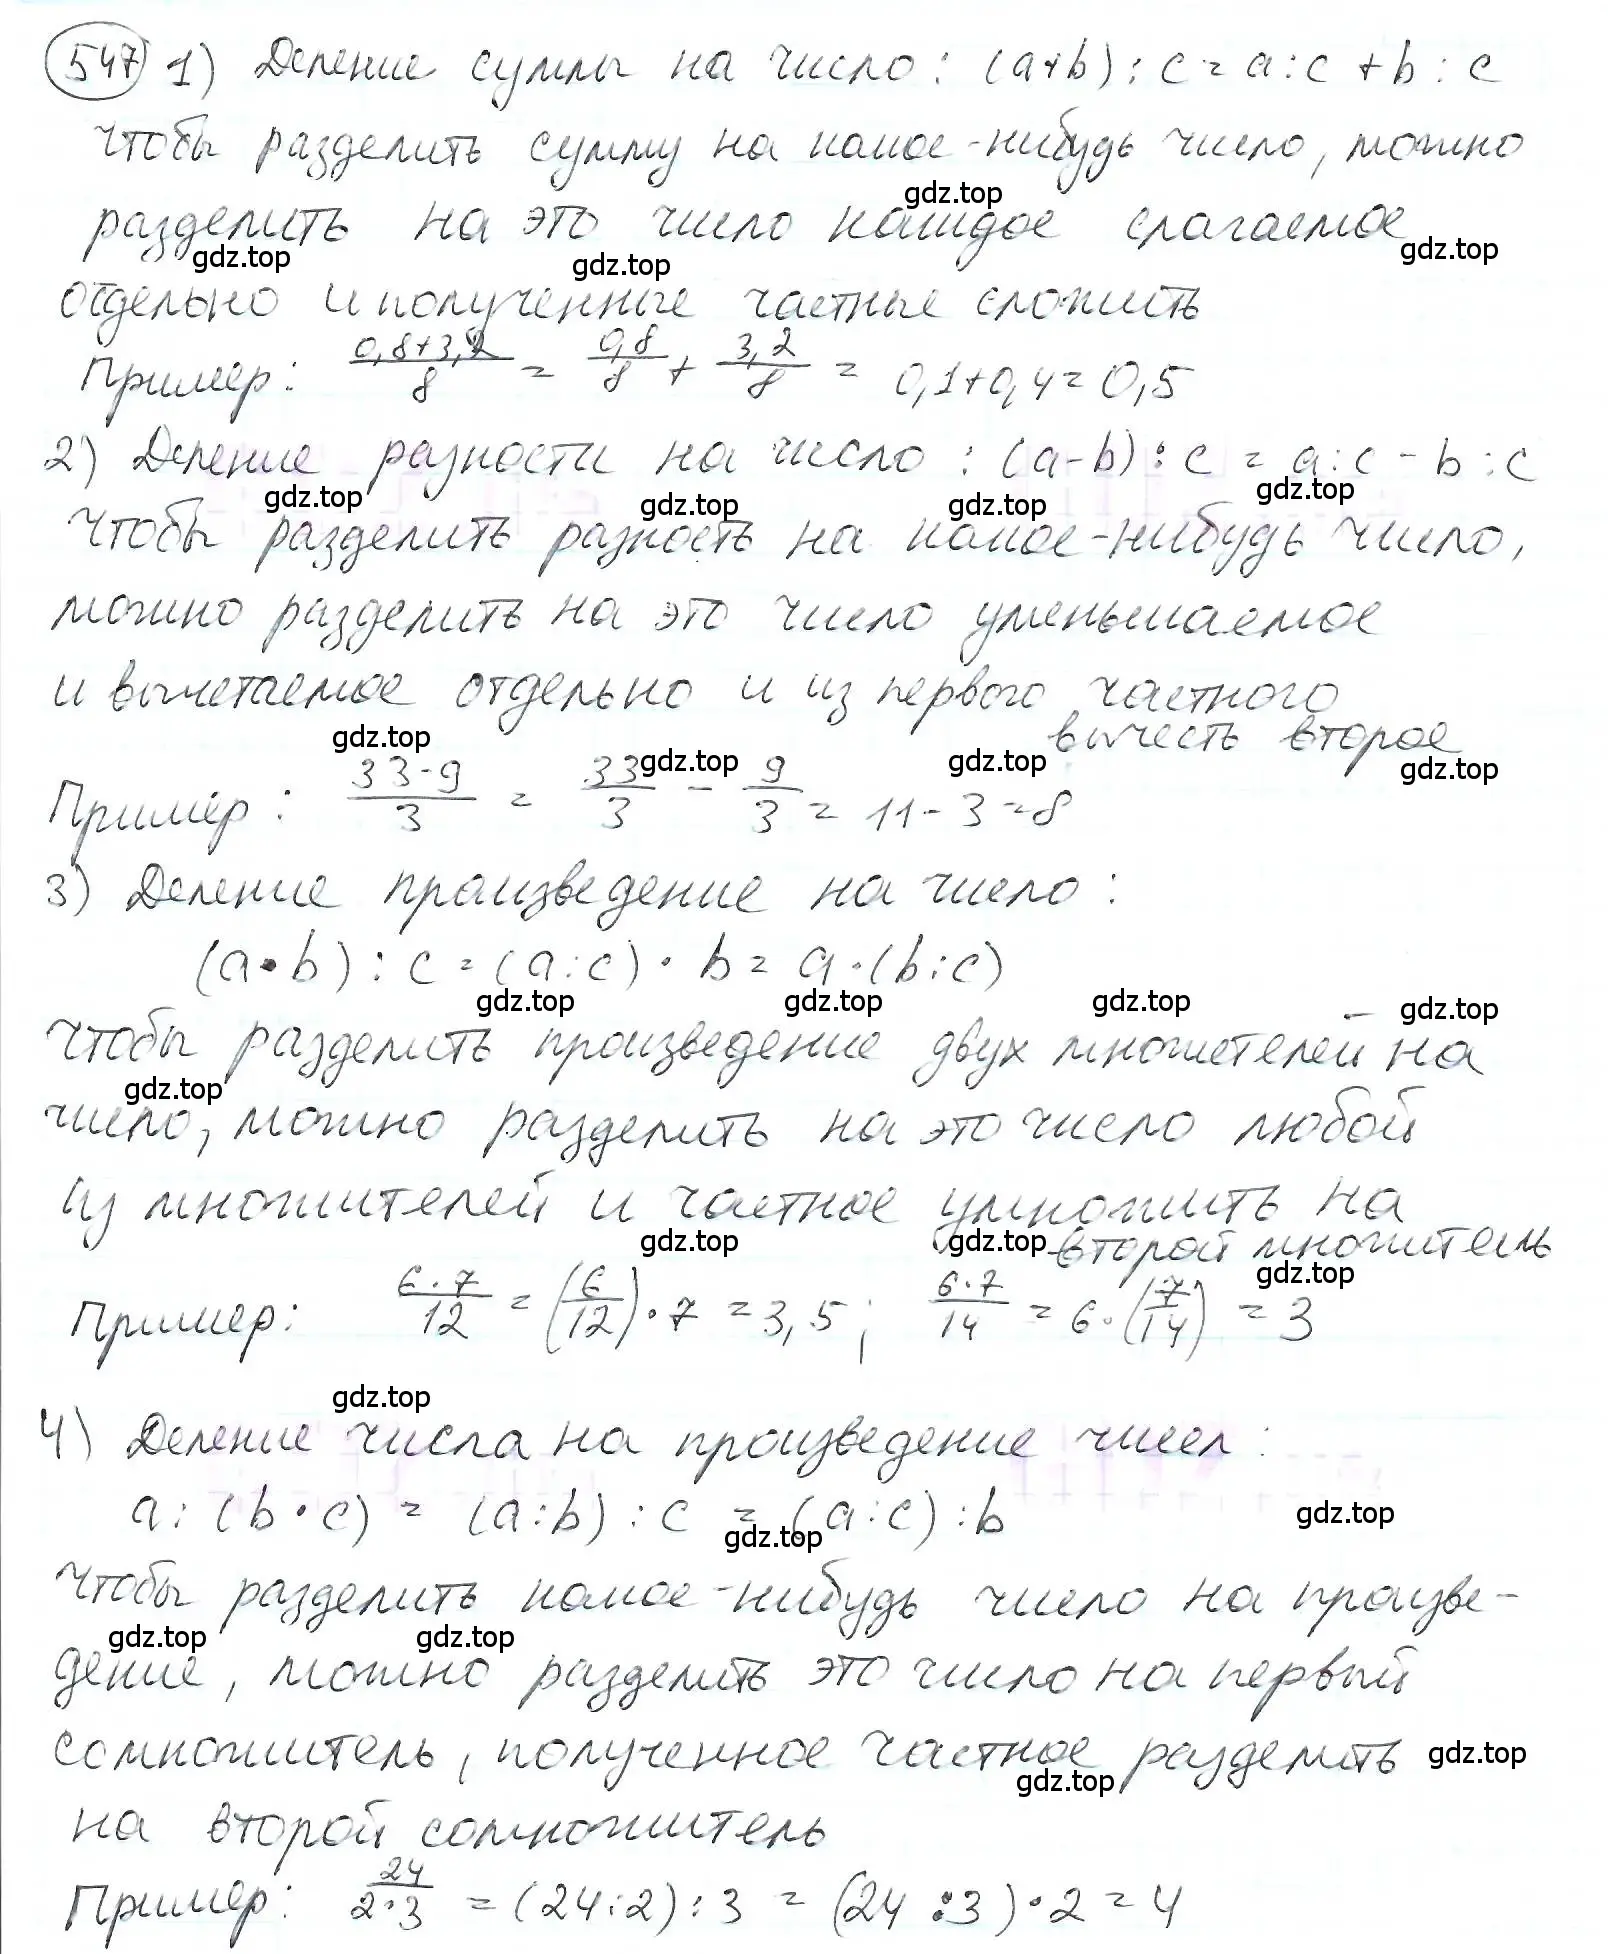 547 1) Деление суммы на число: (a+b):c=a:c+b:c
Чтобы разделить сумму на какое-нибудь число, можно
gdz.top
разделить на это число каждое слагаемое
gdz.top gdz.top gdz.top
отдельно и полученные частные сложить
Пример: (0,8+3,2)/8 = 0,8/8 + 3,2/8 = 0,1+0,4=0,5
2) Деление разности на число: (a-b):c = a:c-b:c
gdz.top gdz.top gdz.top gdz.top
Чтобы разделить разность на какое-нибудь число,
можно разделить на это число уменьшаемое
и вычетаемое отдельно и из первого частного
вычесть второе
gdz.top gdz.top gdz.top gdz.top
Пример: (33-9)/3 = 33/3 - 9/3 = 11-3=8
3) Деление произведение на число:
(a·b):c=(a:c)·b=a·(b:c)
gdz.top gdz.top gdz.top gdz.top
Чтобы разделить произведение двух множетелей на
gdz.top
число, можно разделить на это число любой
из множителей и частное умножить на
второй множитель
gdz.top gdz.top gdz.top
Пример: (6·7)/12 = (6/12)·7=3,5; (6·7)/14 = 6·(7/14) = 3
gdz.top
4) Деление числа на произведение чисел:
a:(b·c) = (a:b):c = (a:c):b
gdz.top gdz.top
Чтобы разделить какое-нибудь число на произве-
gdz.top gdz.top
дение, можно разделить это число на первый
сомножитель, полученное частное разделить
gdz.top gdz.top
на второй сомножитель
Пример: 24/(2·3) = (24:2):3 = (24:3)·2=4